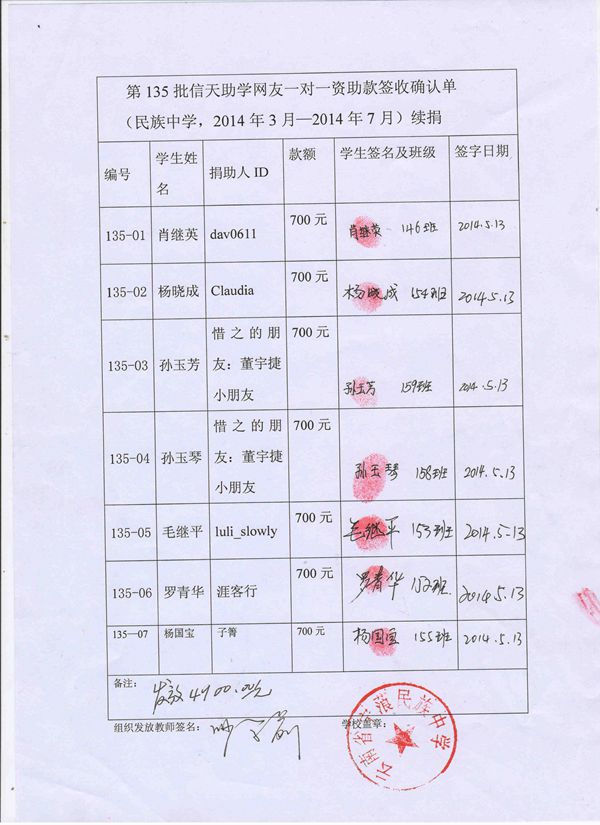 第 135 批信天助学网友一对一资助款签收确认单
（民族中学，2014 年 3 月—2014 年 7 月）续捐
编号 学生姓名 捐助人 ID 款额 学生签名及班级 签字日期
135-01 肖继英 dav0611 700 元 肖继英 146班 2014.5.13
135-02 杨晓成 Claudia 700 元 杨晓成 154班 2014.5.13
135-03 孙玉芳 惜之的朋友：董宇捷小朋友 700 元 孙玉芳 159班 2014.5.13
135-04 孙玉琴 惜之的朋友：董宇捷小朋友 700 元 孙玉琴 158班 2014.5.13
135-05 毛继平 luli_slowly 700 元 毛继平 153班 2014.5-13
135-06 罗青华 涯客行 700 元 罗青华 152班 2014.5.13
135—07 杨国宝 子箐 700 元 杨国宝 155班 2014.5.13
备注： 发放4900.00元
组织发放教师签名： 学校盖章：
云南省 蒗民族中学